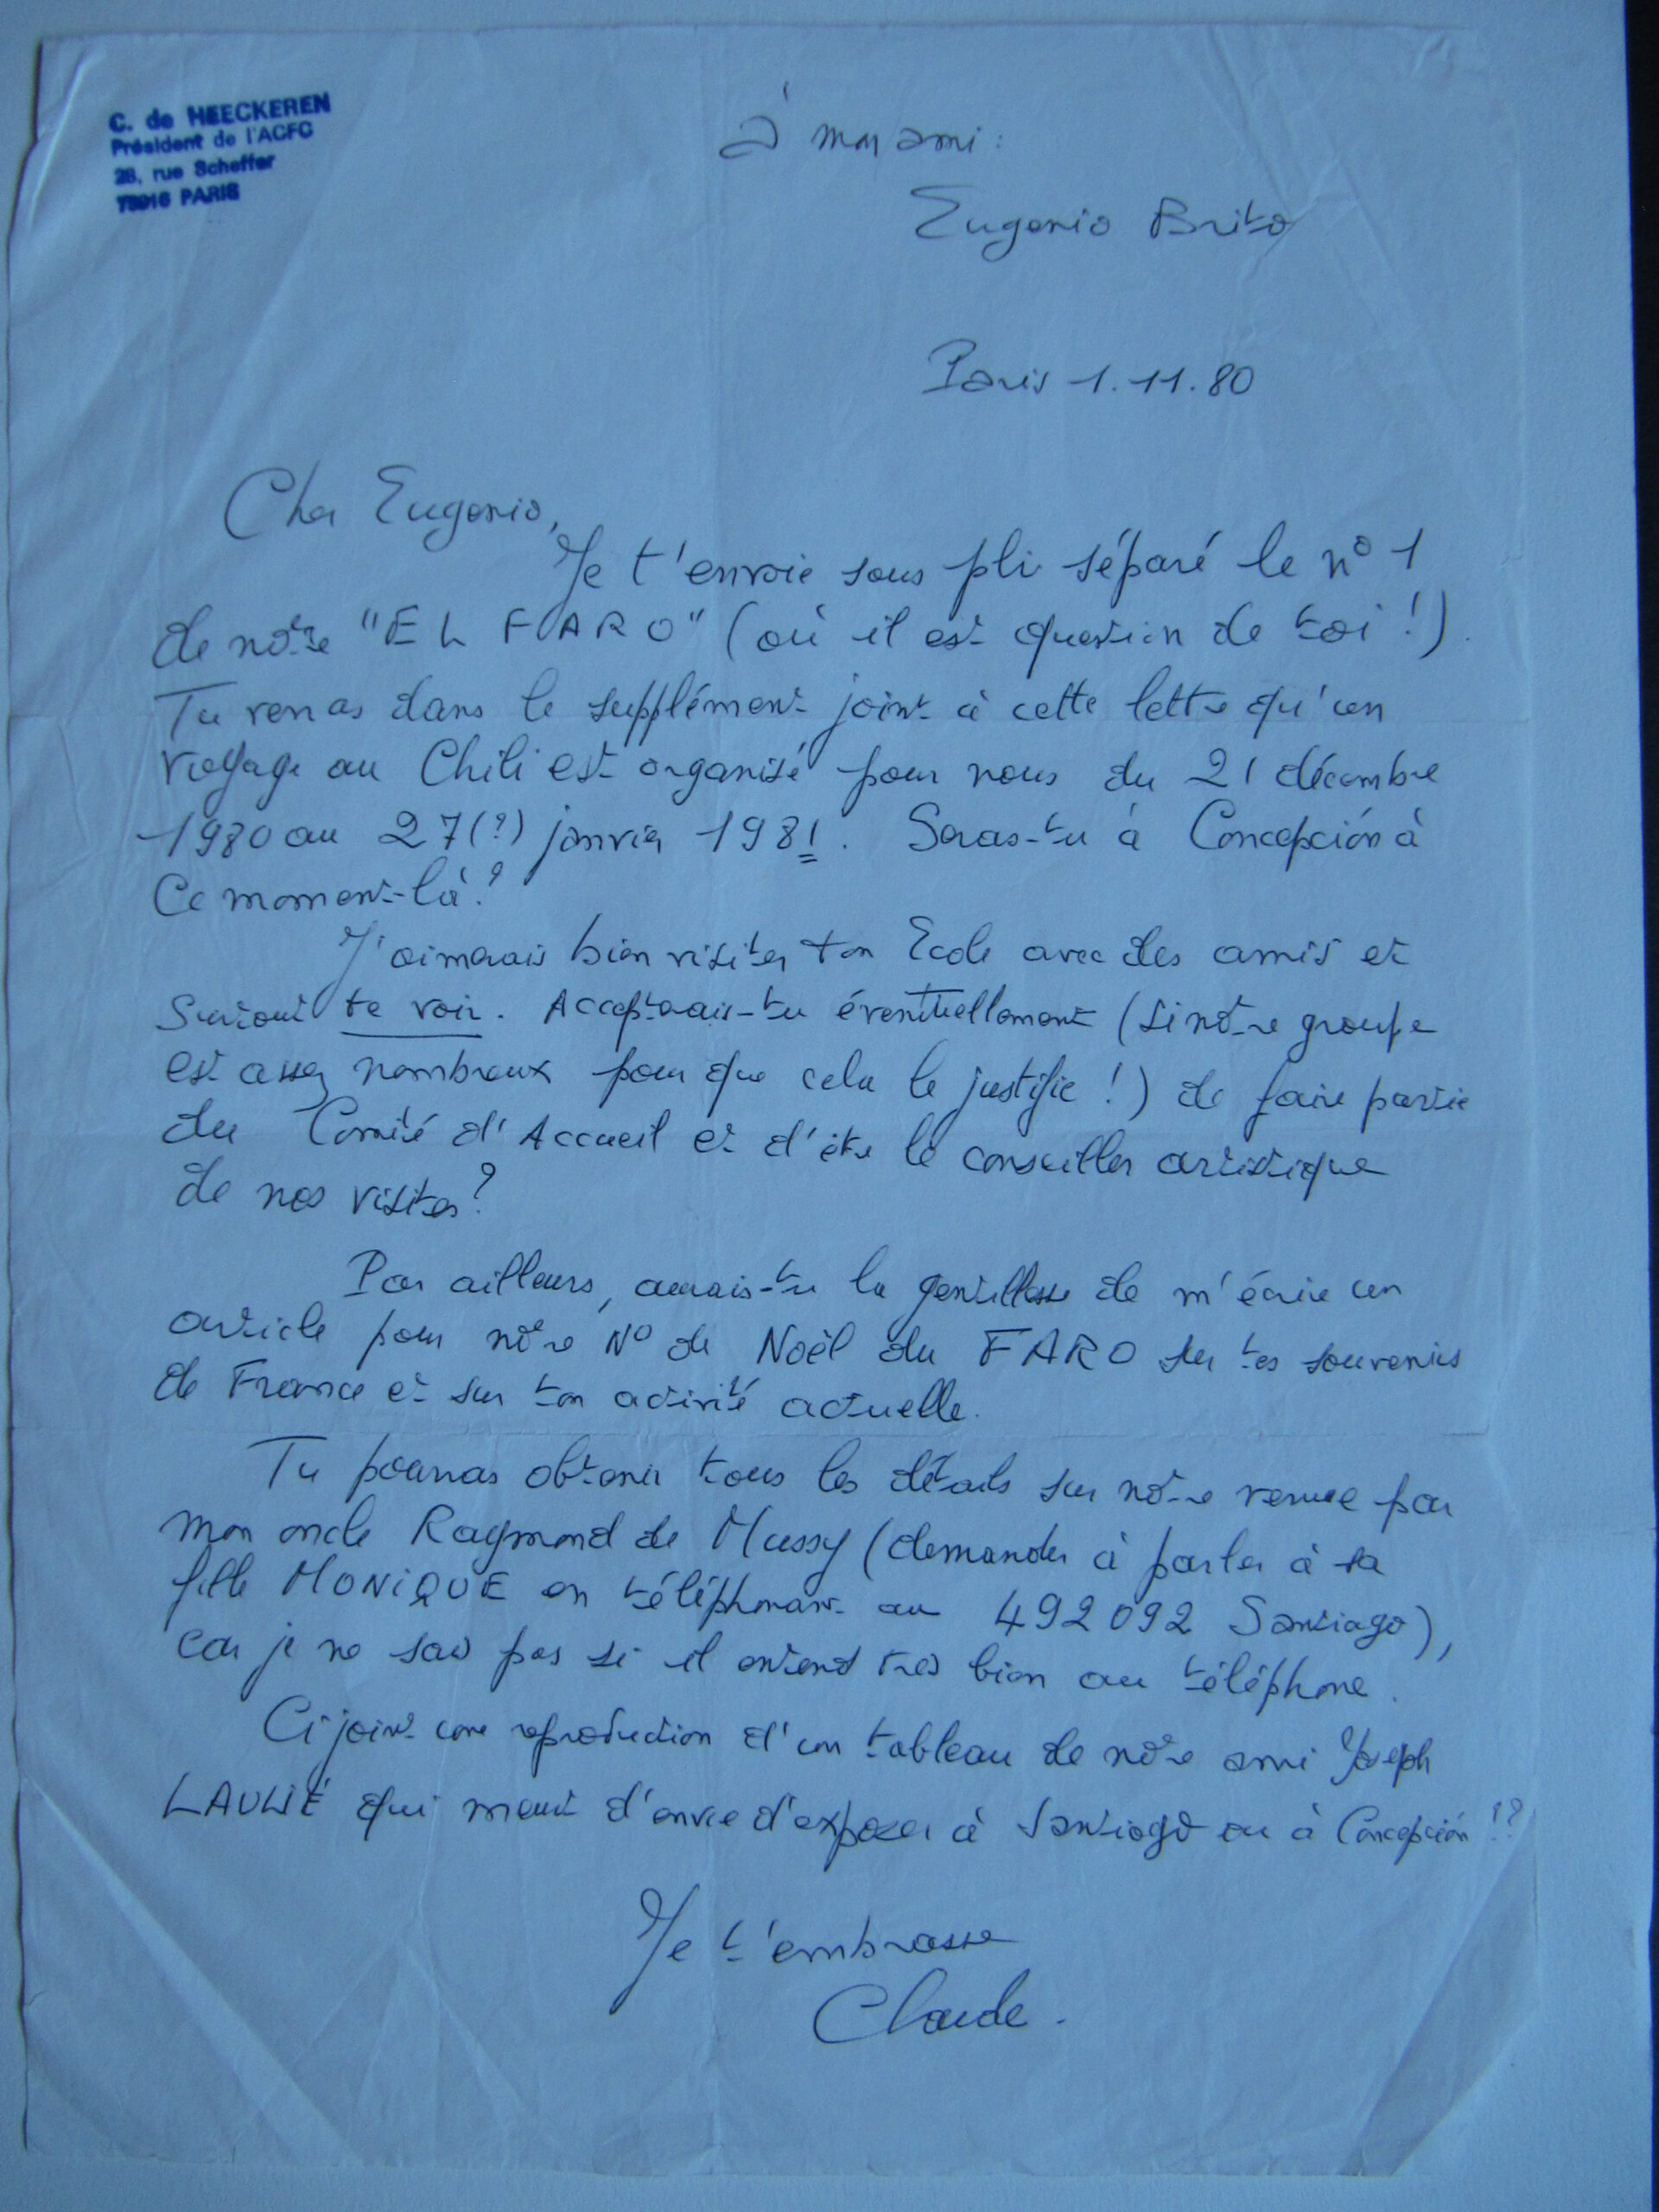 C. de HEECKEREN
Président de l'ACFC
28, rue Scheffer
75016 PARIS
à mon ami :
Eugenio Brito
Paris 1.11.80
Cher Eugenio,
Je t'envoie sous pli séparé le n° 1
de notre "EL FARO" (où il est question de toi !).
Tu verras dans le supplément joint à cette lettre qu'un
voyage au Chili est organisé pour nous du 21 décembre
1980 au 27(?) janvier 1981. Seras-tu à Concepción à
ce moment-là ?
J'aimerais bien visiter ton Ecole avec des amis et
surtout te voir. Accepterais-tu éventuellement (si notre groupe
est assez nombreux pour que cela le justifie !) de faire partie
du Comité d'Accueil et d'être le conseiller artistique
de nos visites ?
Par ailleurs, aurais-tu la gentillesse de m'écrire un
article pour notre N° de Noël du FARO sur tes souvenirs
de France et sur ton activité actuelle.
Tu pourras obtenir tous les détails sur notre venue par
mon oncle Raymond de Mussy (demander à parler à sa
fille MONIQUE en téléphonant au 492092 Santiago),
car je ne sais pas si il entend très bien au téléphone.
Ci joint une reproduction d'un tableau de notre ami Joseph
LAULIÉ qui meurt d'envie d'exposer à Santiago ou à Concepción !?
Je t'embrasse
Claude.